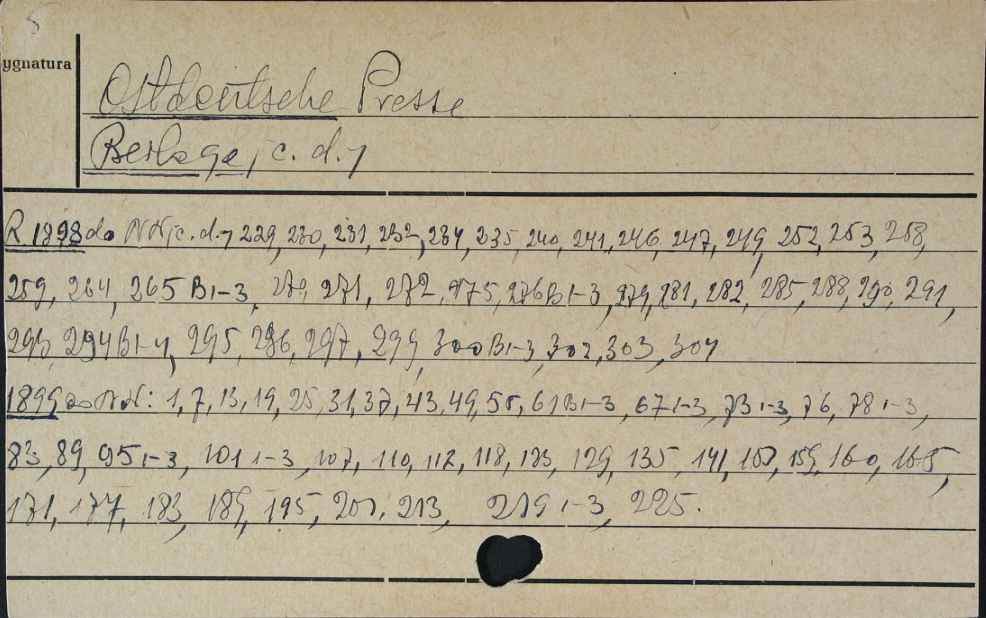 5
ygnatura
Ostdeutsche Presse
Beilage, c. d. 7
R 1898 do NN (c. d. 7 229, 230, 231, 232, 234, 235, 240, 241, 246, 247, 249, 252, 253, 258,
259, 264, 265 B1-3, 270, 271, 272, 275, 276 B1-3, 279, 281, 282, 285, 288, 290, 291,
293, 294 B1-4, 295, 296, 297, 299, 300 B1-3, 302, 303, 304
1899 do NN: 1, 7, 13, 19, 25, 31, 37, 43, 49, 55, 61 B1-3, 67 1-3, 73 1-3, 76, 78 1-3,
83, 89, 95 1-3, 101 1-3, 107, 110, 112, 118, 123, 129, 135, 141, 159, 160, 165,
171, 177, 183, 189, 195, 207, 213, 219 1-3, 225.